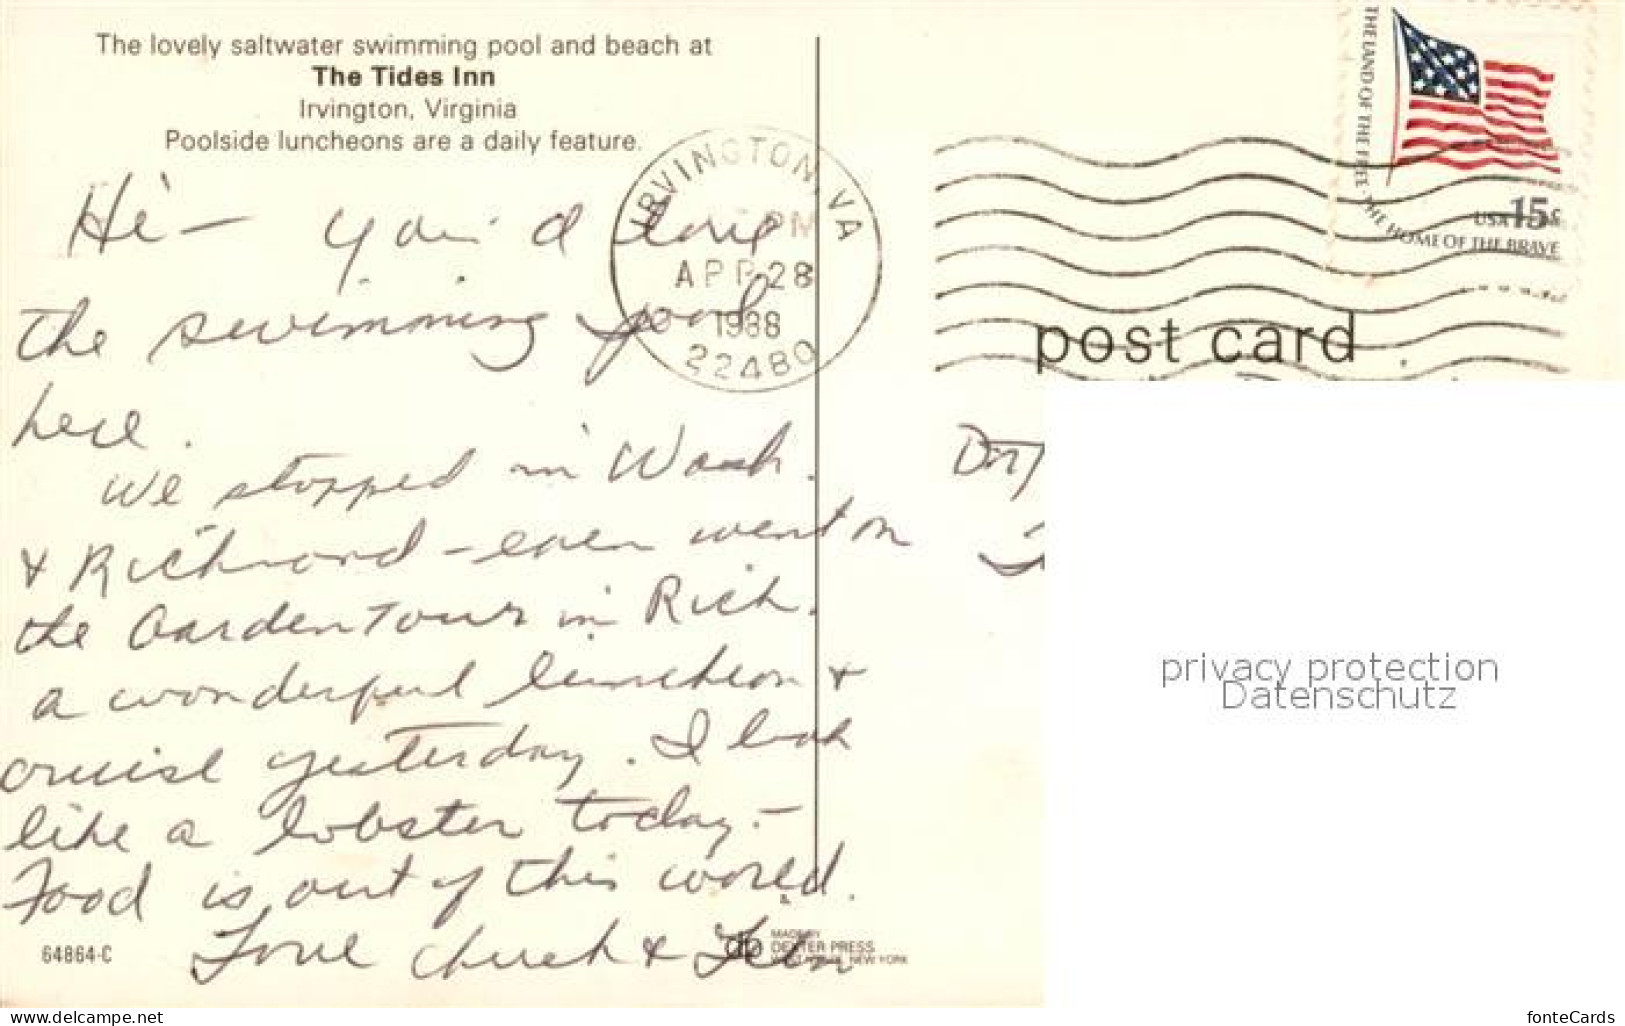 The lovely saltwater swimming pool and beach at
The Tides Inn
Irvington, Virginia
Poolside luncheons are a daily feature.
IRVINGTON, VA
PM
APR 28
1988
22480
THE LAND OF THE FREE THE HOME OF THE BRAVE
USA 15c
post card
Hi - you'd love
the swimming pool
here.
We stopped in Wash.
& Richmond - even went on
the Garden Tour in Rich.
a wonderful luncheon &
cruise yesterday. I look
like a lobster today. -
Food is out of this world.
Love Chuck &
64864-C
MADE BY
DEXTER PRESS
NEW YORK
privacy protection
Datenschutz
www.delcampe.net
fonteCards